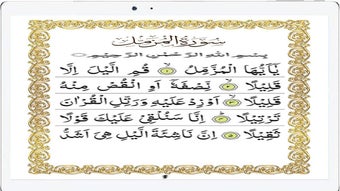 سورة المزمل
بسم الله الرحمن الرحيم
يٰۤاَيُّهَا الْمُزَّمِّلُ ۙ۱ قُمِ الَّيْلَ اِلَّا
قَلِيْلًا ۙ۲ نِّصْفَهٗۤ اَوِ انْقُصْ مِنْهُ
قَلِيْلًا ۙ۳ اَوْ زِدْ عَلَيْهِ وَرَتِّلِ الْقُرْاٰنَ
تَرْتِيْلًا ؕ۴ اِنَّا سَنُلْقِيْ عَلَيْكَ قَوْلًا
ثَقِيْلًا ۵ اِنَّ نَاشِئَةَ الَّيْلِ هِيَ اَشَدُّ